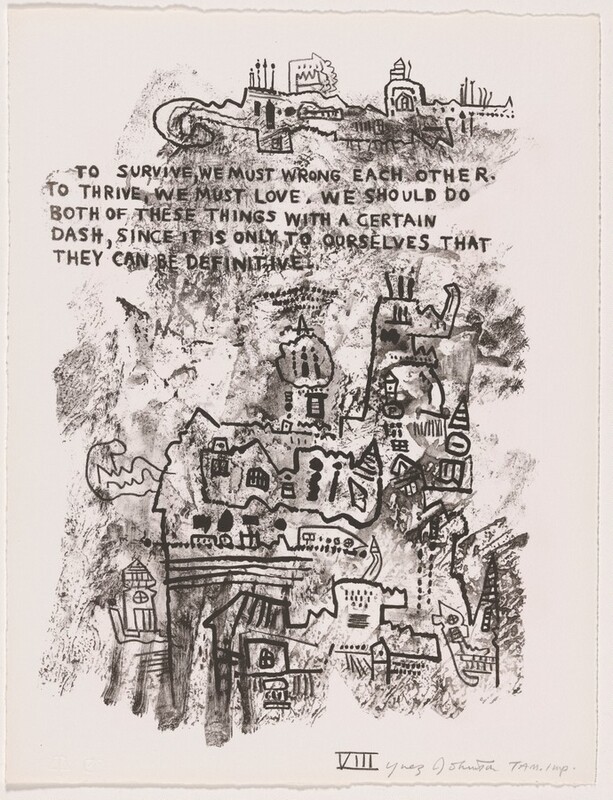 TO SURVIVE, WE MUST WRONG EACH OTHER.
TO THRIVE, WE MUST LOVE. WE SHOULD DO
BOTH OF THESE THINGS WITH A CERTAIN
DASH, SINCE IT IS ONLY TO OURSELVES THAT
THEY CAN BE DEFINITIVE.
VIII Ynez Johnston TAM. Imp.